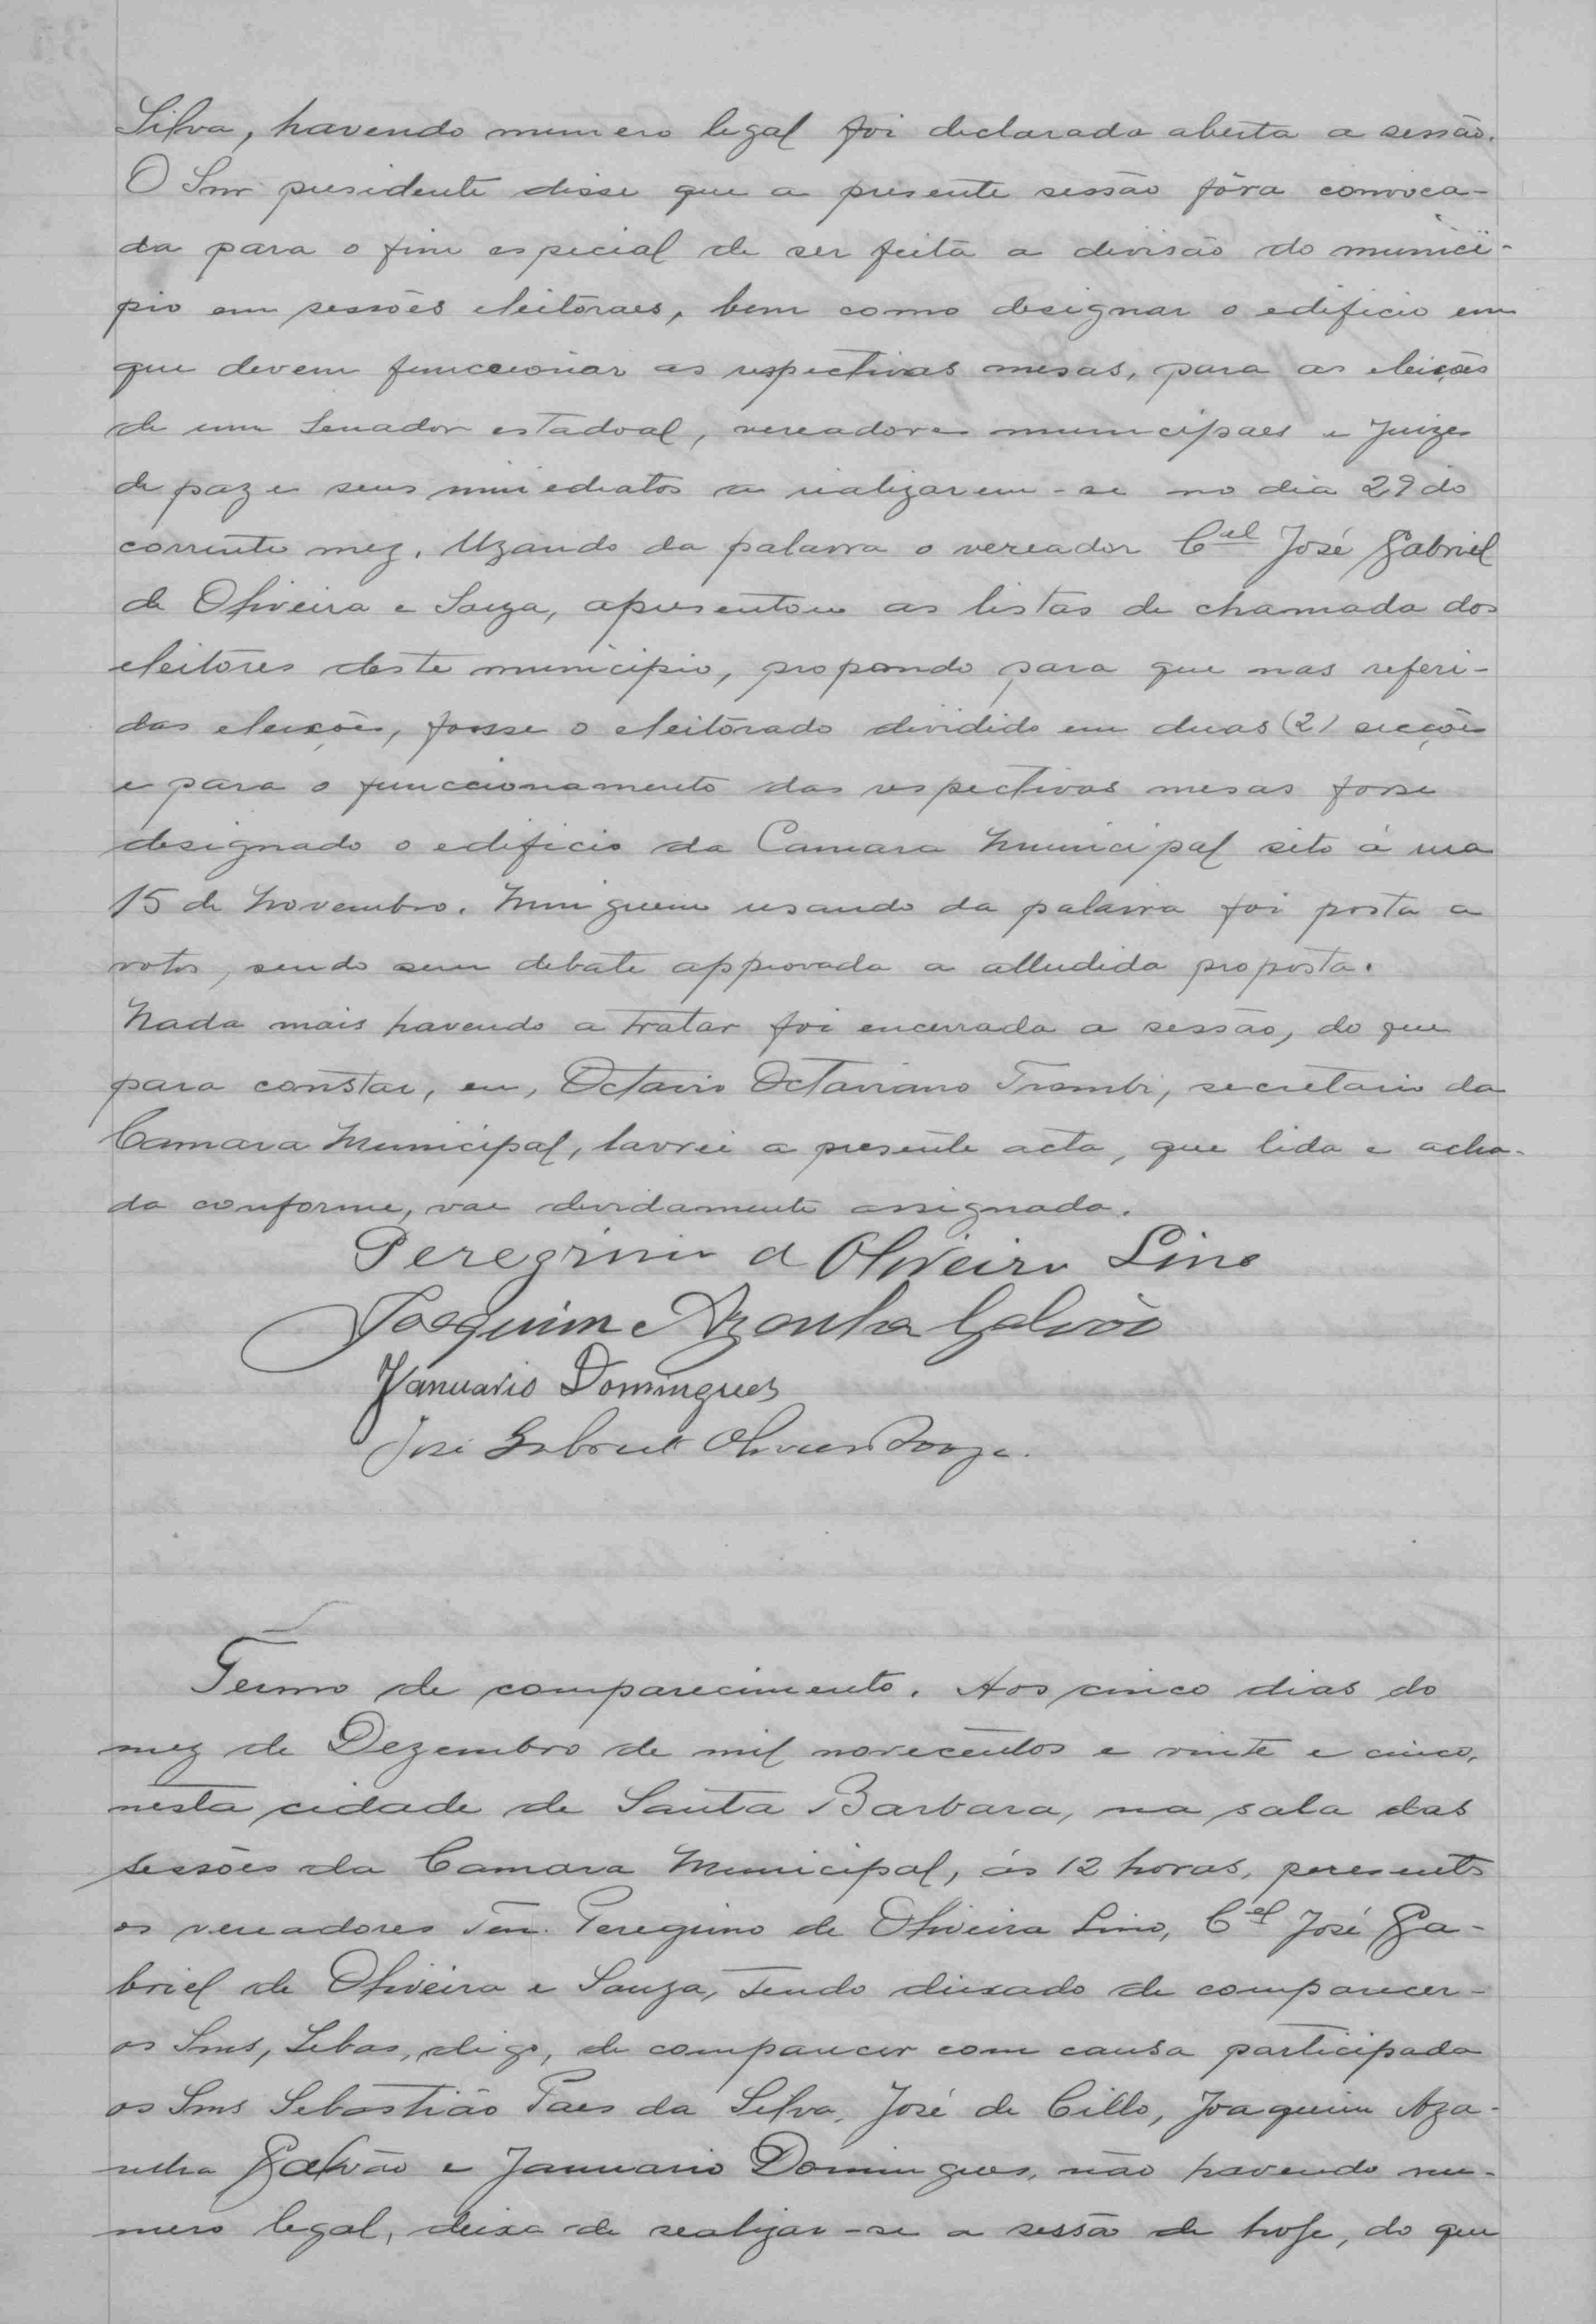 Silva, havendo numero legal foi declarada aberta a sessão.
O Snr presidente disse que a presente sessão fôra convoca-
da para o fim especial de ser feita a divisão do munici-
pio em sessões eleitoraes, bem como designar o edificio em
que devem funccionar as respectivas mesas, para as eleições
de um Senador estadoal, vereadores municipaes e Juizes
de paz e seus immediatos a realizarem-se no dia 29 do
corrente mez. Uzando da palavra o vereador Cel José Gabriel
de Oliveira e Souza, apresentou as listas de chamada dos
eleitores deste municipio, propondo para que nas referi-
das eleições, fosse o eleitorado dividido em duas (2) secções
e para o funccionamento das respectivas mesas fosse
designado o edificio da Camara Municipal sito á rua
15 de Novembro. Ninguem usando da palavra foi posta a
votos, sendo sem debate approvada a alludida proposta.
Nada mais havendo a tratar foi encerrada a sessão, do que
para constar, eu, Octavio Octaviano Trombi, secretario da
Camara Municipal, lavrei a presente acta, que lida e acha-
da conforme, vae devidamente assignada.
Peregrino d Oliveira Lino
Joaquim Azanha Galvão
Januario Domingues
José Gabriel Oliveira Souza.
Termo de comparecimento. Aos cinco dias do
mez de Dezembro de mil novecentos e vinte e cinco,
nesta cidade de Santa Barbara, na sala das
sessões da Camara Municipal, ás 12 horas, peresentes
os vereadores Ten. Peregrino de Oliveira Lino, Cel José Ga-
briel de Oliveira e Souza, tendo deixado de comparecer-
os Snrs, Sebas, digo, de comparecer com causa participada
os Snrs Sebastião Paes da Silva, José de Cillo, Joaquim Aza-
nha Galvão e Januario Domingues, não havendo nu-
mero legal, deixa de realizar-se a sessão de hoje, do que